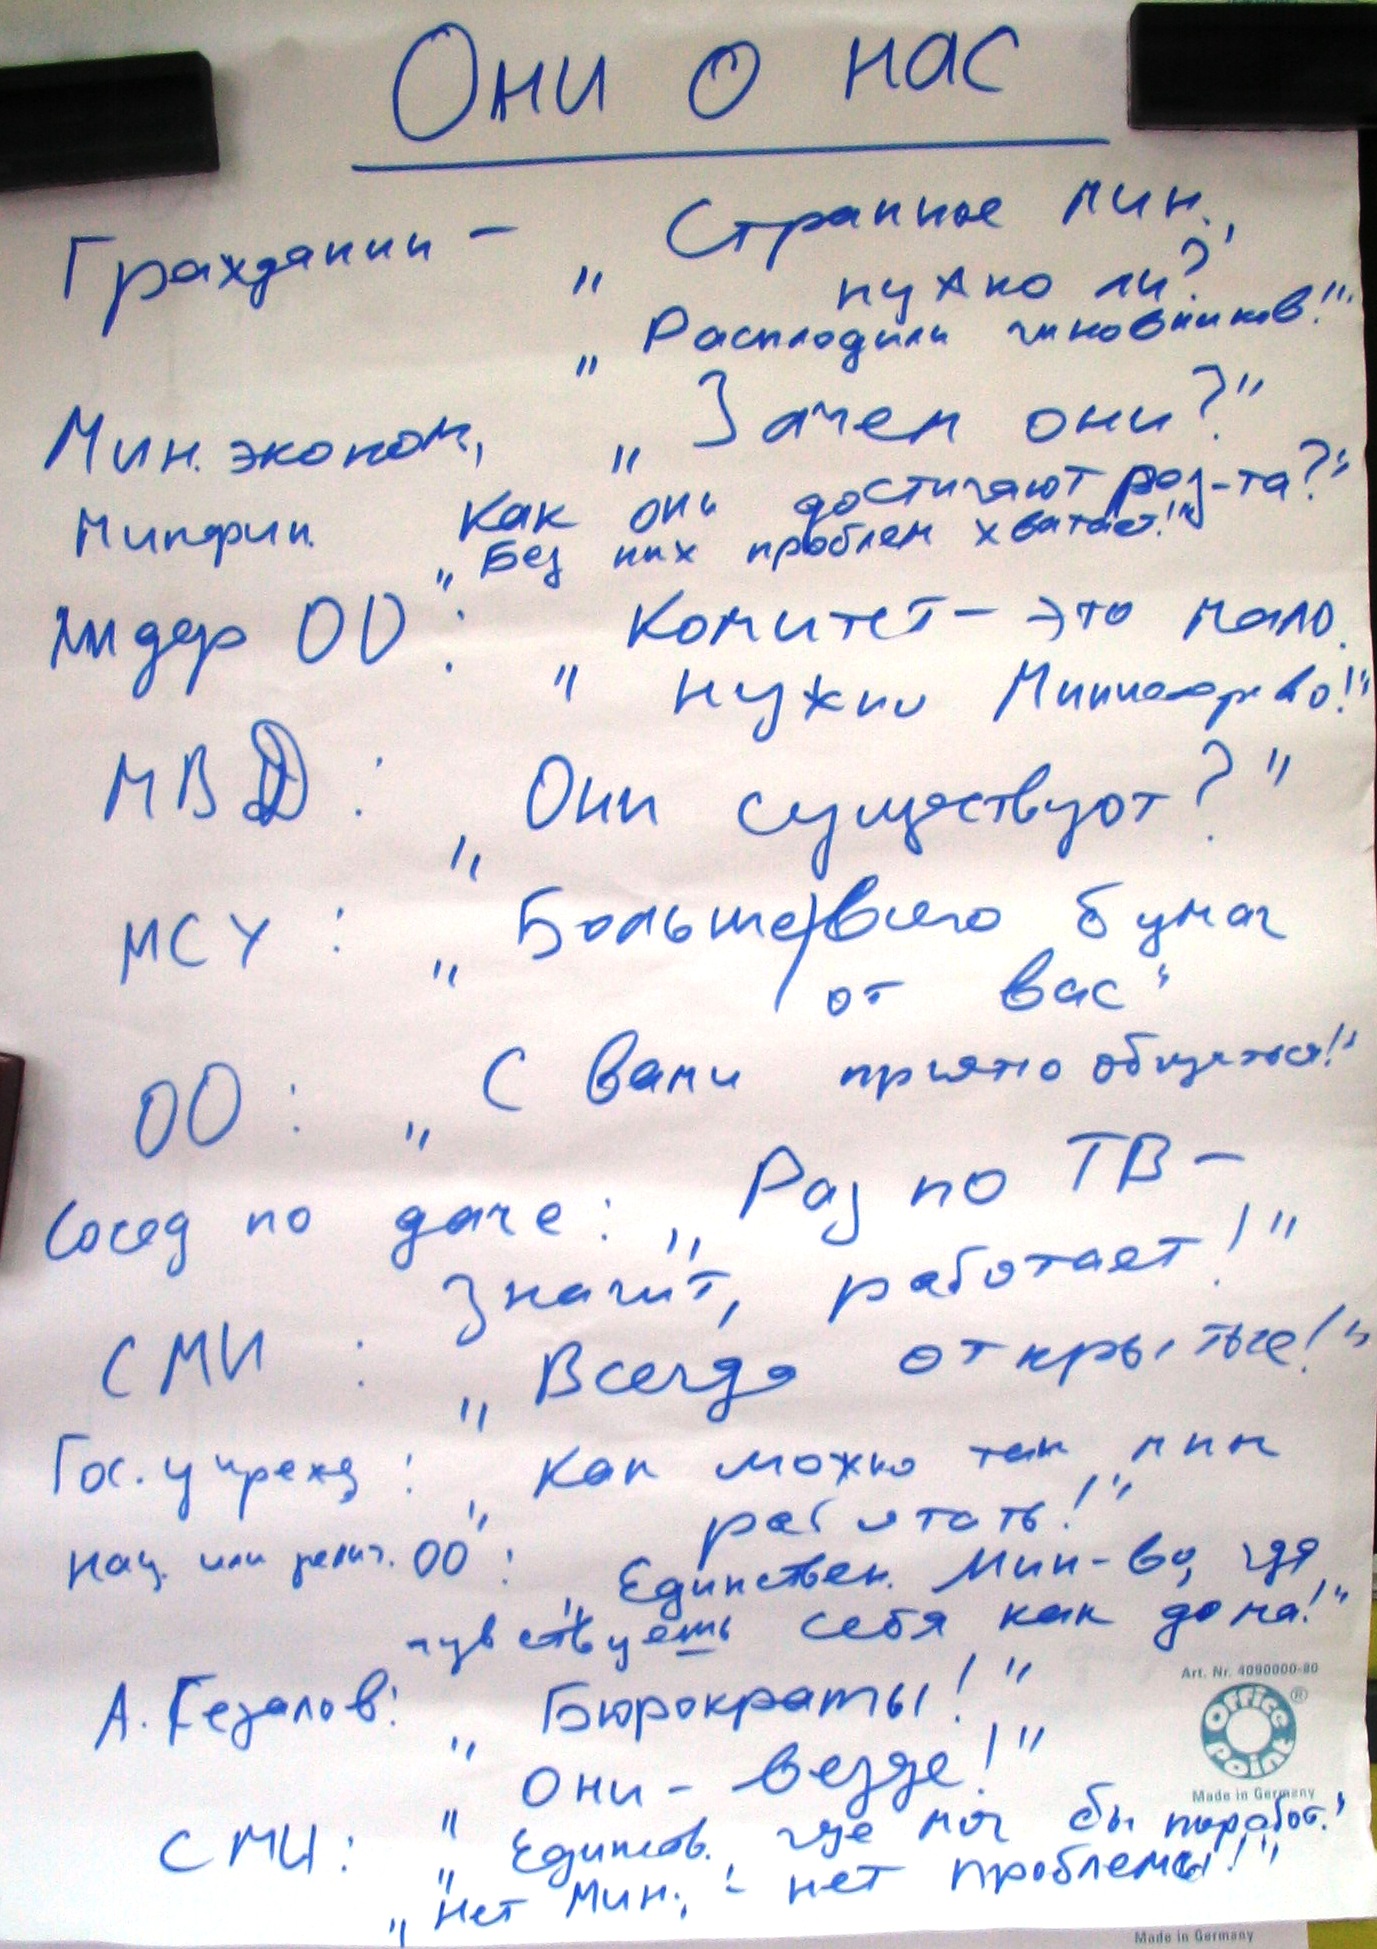 Они о нас
Гражданин – „Странное мин.,
нужно ли?"
„Расплодили чиновников!"
Мин. эконом, „Зачем они?"
Минфин. Как они достигают рез-та?"
„Без них проблем хватает!"
Лидер ОО: „Комитет – это мало.
Нужно Министерство!"
МВД: „Они существуют?"
МСУ: „Больше всего бумаг
от вас"
ОО: „С вами приятно общаться!"
Сосед по даче: „Раз по ТВ –
значит, работает!"
СМИ: „Всегда открытые!"
Гос. учрежд: „Как можно там
работать!"
нац. или религ. ОО: „Единствен. Мин-во, где
чувствуешь себя как дома!"
А. Гезалов: „Бюрократы!"
„Они – везде!"
СМИ: „Единств. где мог бы поработ."
„Нет Мин. – нет проблемы!"
Art. Nr. 4090000-80
Office Point ®
Made in Germany
Made in Germany